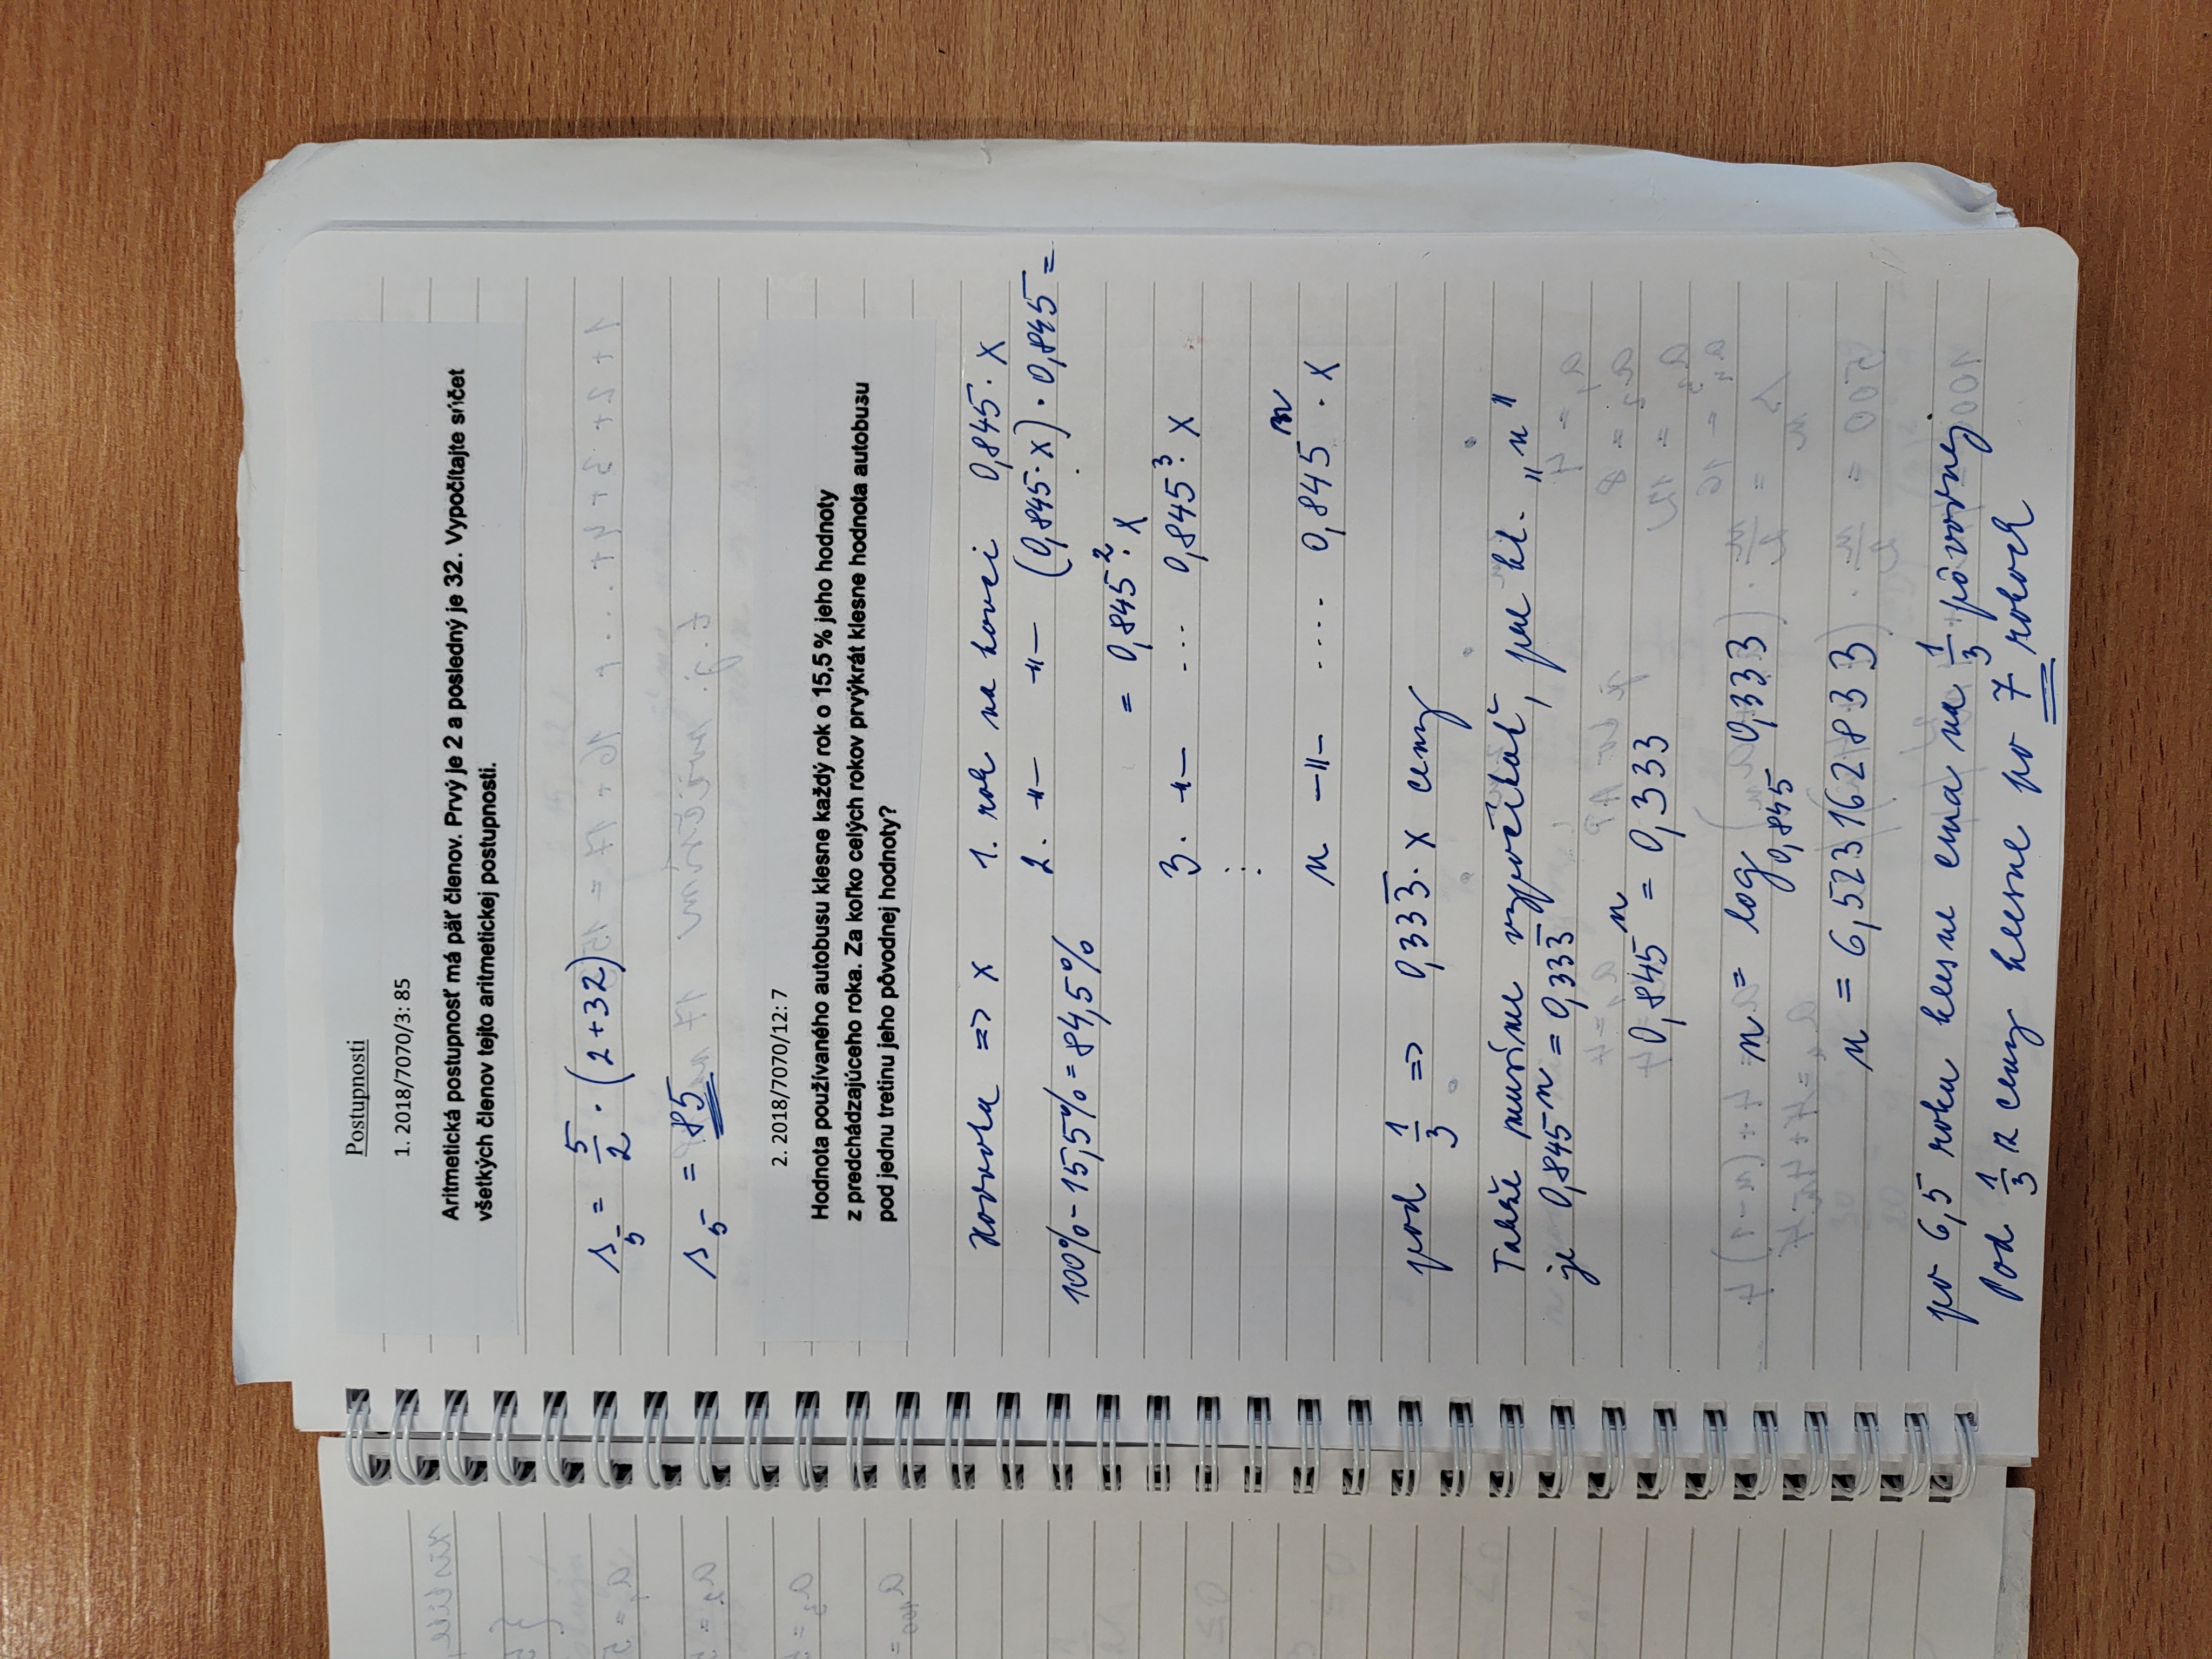 Postupnosti
1. 2018/7070/3: 85
Aritmetická postupnosť má päť členov. Prvý je 2 a posledný je 32. Vypočítajte súčet
všetkých členov tejto aritmetickej postupnosti.
s₅ = 5/2 · (2+32)
s₅ = 85
2. 2018/7070/12: 7
Hodnota používaného autobusu klesne každý rok o 15,5 % jeho hodnoty
z predchádzajúceho roka. Za koľko celých rokov prvýkrát klesne hodnota autobusu
pod jednu tretinu jeho pôvodnej hodnoty?
Hodnota => x 1. rok na konci 0,845 · x
100% - 15,5% = 84,5% 2. -"- -"- (0,845 · x) · 0,845 =
= 0,845² · x
3. -"- ... 0,845³ · x
⋮
n -"- .... 0,845ⁿ · x
pod 1/3 => 0,333 · x ceny
Takže musíme vypočítať, pre kt. "n"
je 0,845ⁿ = 0,333
0,845ⁿ = 0,333
n = log₀,₈₄₅ 0,333
n = 6,523162833
po 6,5 roku klesne cena na 1/3 pôvodnej
Pod 1/3 z ceny klesne po 7 rokoch